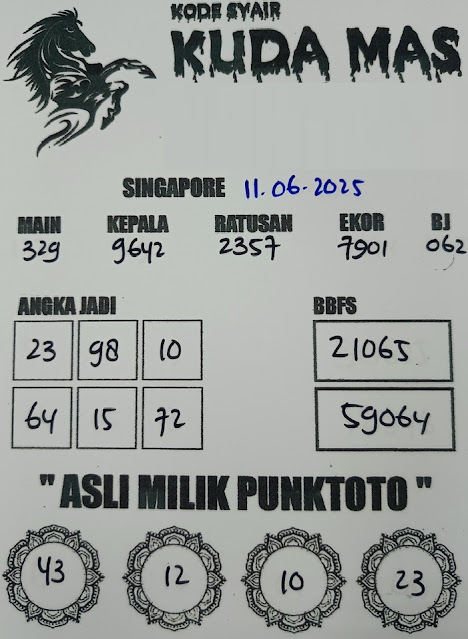 KODE SYAIR
KUDA MAS
SINGAPORE 11.06-2025
MAIN KEPALA RATUSAN EKOR BJ
329 9642 2357 7901 062
ANGKA JADI BBFS
23 98 10 21065
64 15 72 59064
"ASLI MILIK PUNKTOTO"
43 12 10 23